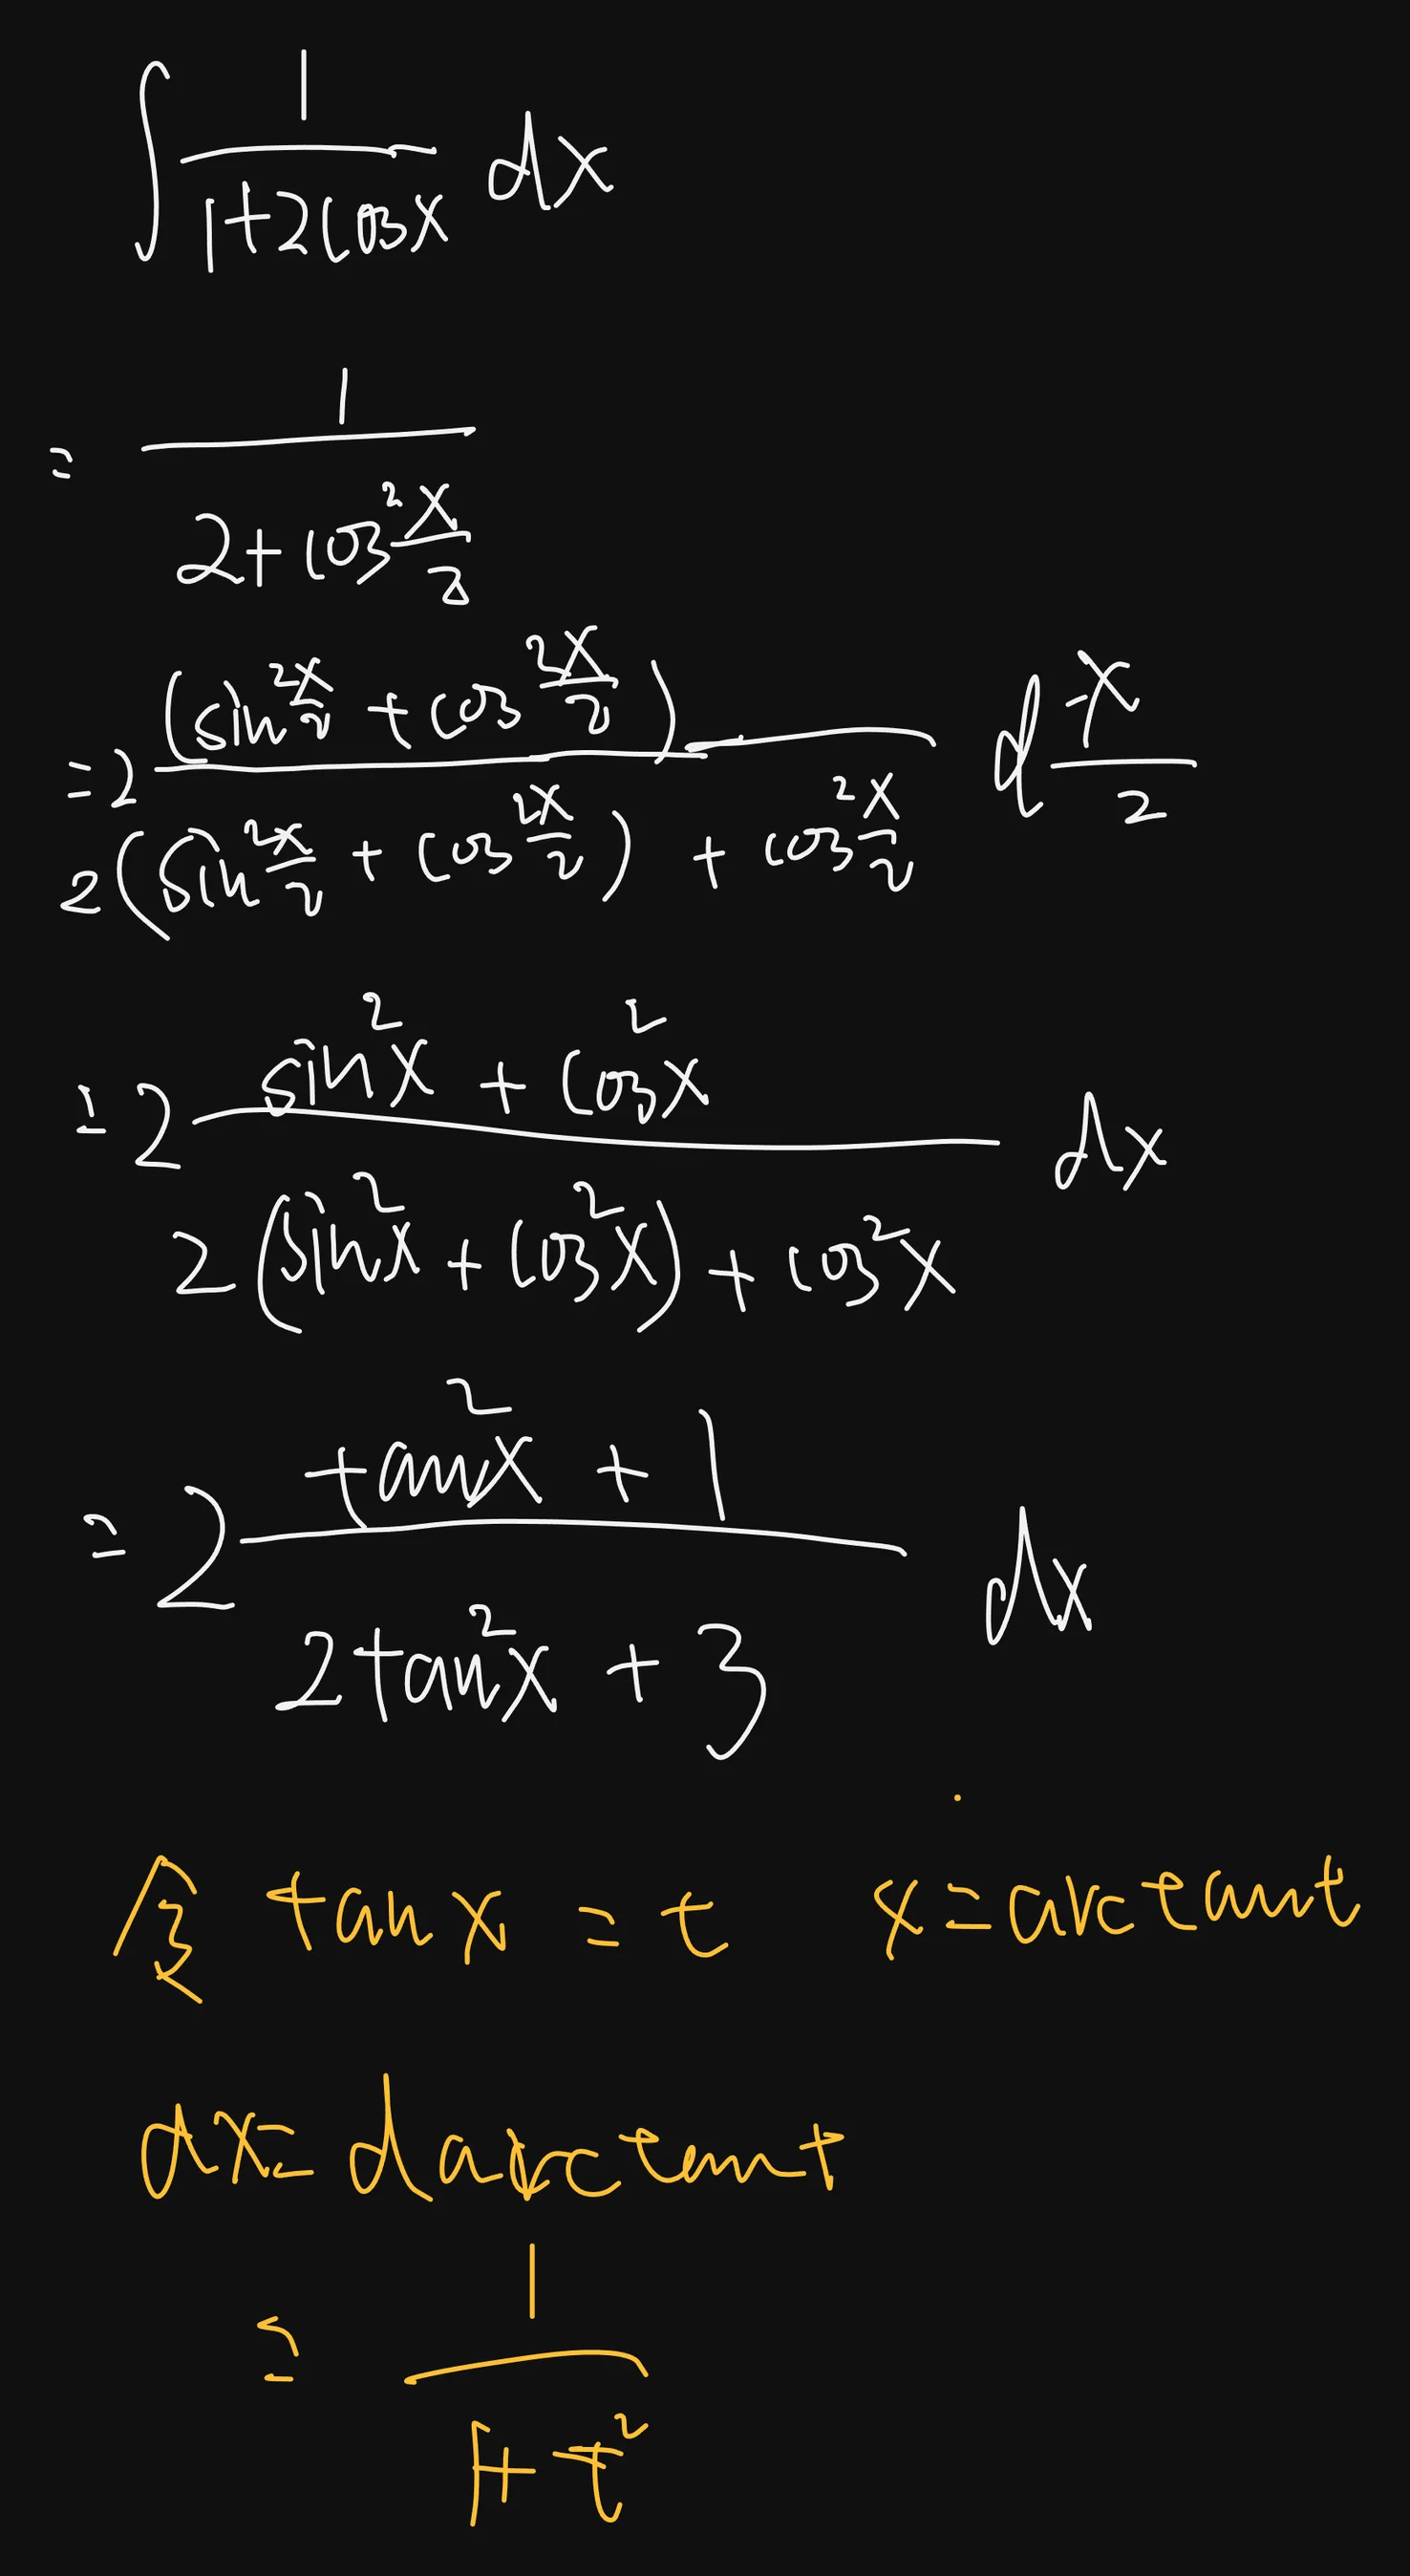 ∫ 1/(1+2cosx) dx
= 1/(2+cos²(x/2))
= 2 (sin²(x/2) + cos²(x/2)) / (2(sin²(x/2) + cos²(x/2)) + cos²(x/2)) d(x/2)
= 2 (sin²x + cos²x) / (2(sin²x + cos²x) + cos²x) dx
= 2 (tan²x + 1) / (2tan²x + 3) dx
令 tanx = t x = arctant
dx = darctant
= 1/(1+t²)